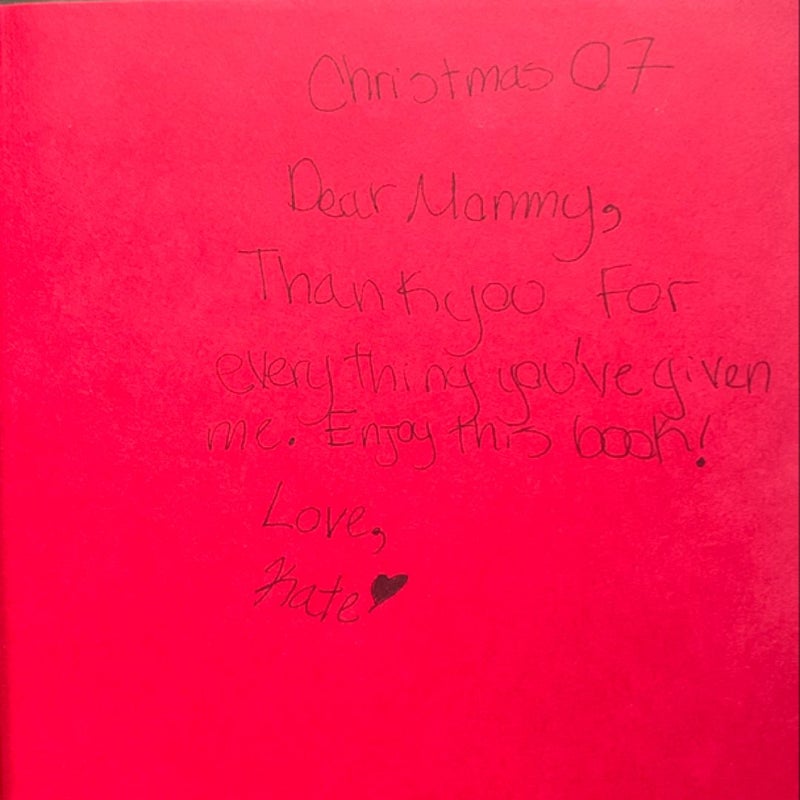 Christmas 07
Dear Mommy,
Thank you For
everything you've given
me. Enjoy this book!
Love,
Kate